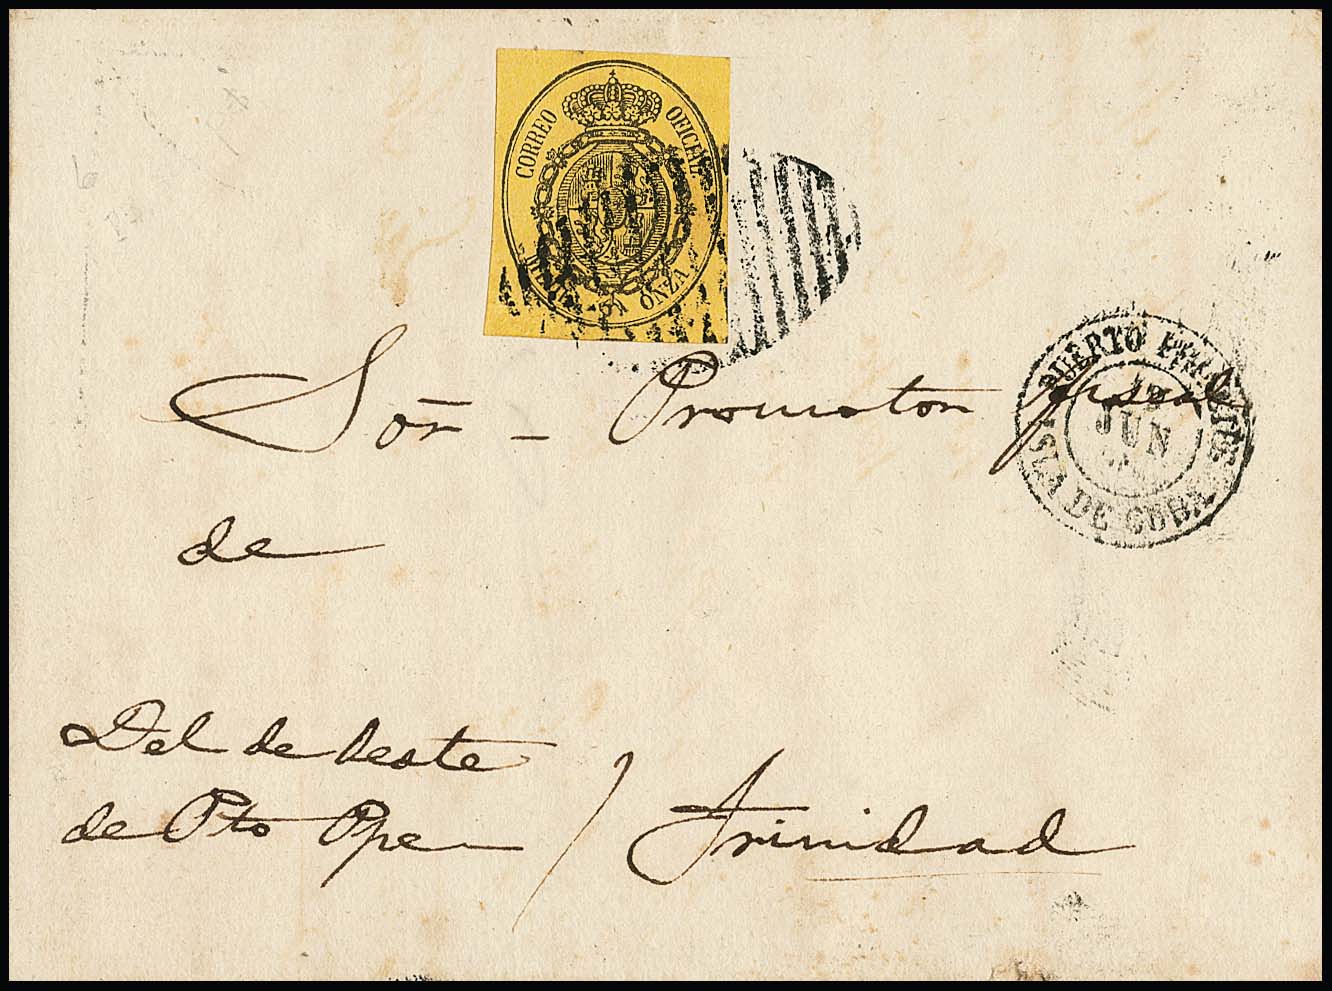 CORREO OFICIAL
MEDIA ONZA
Sor - Promotor fiscal
PUERTO PRINCIPE
JUN
ISLA DE CUBA
de
Del de
de Pto Ppe / Trinidad